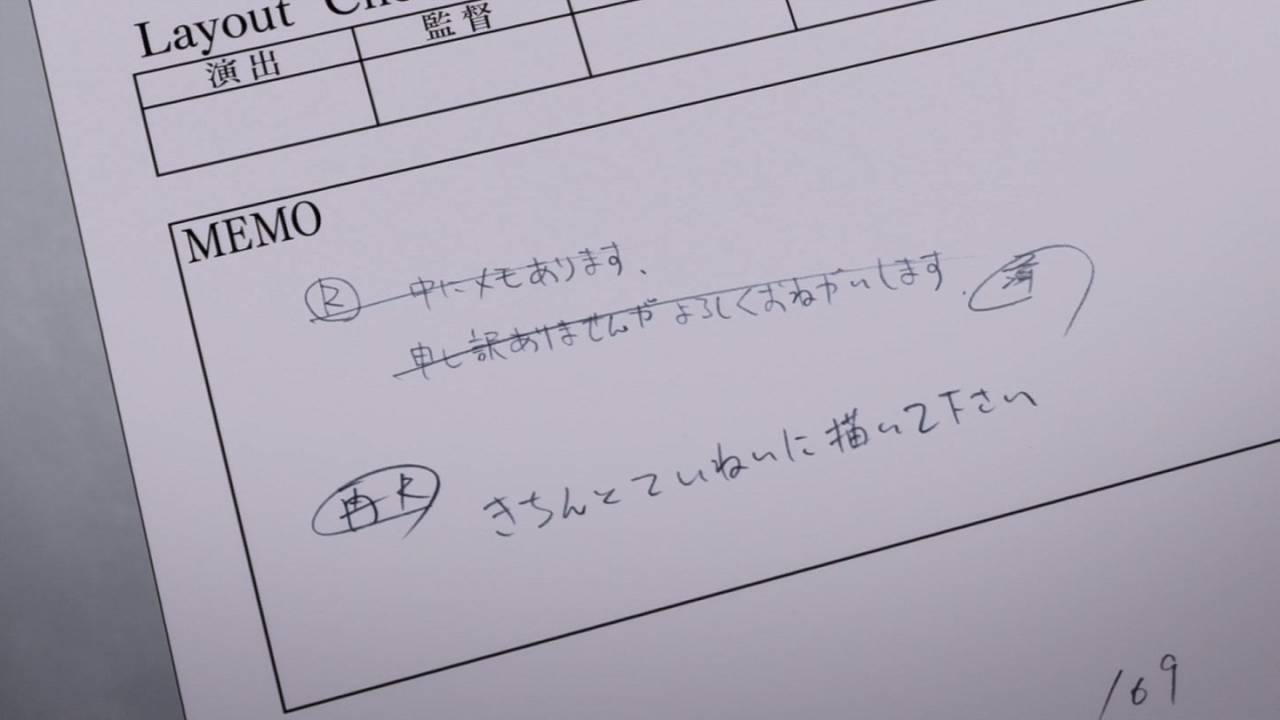 Layout Che
演出 監督
MEMO
Ⓡ 中にメモあります、
申し訳ありませんがよろしくおねがいします. 済
再R きちんとていねいに描いて下さい
/69